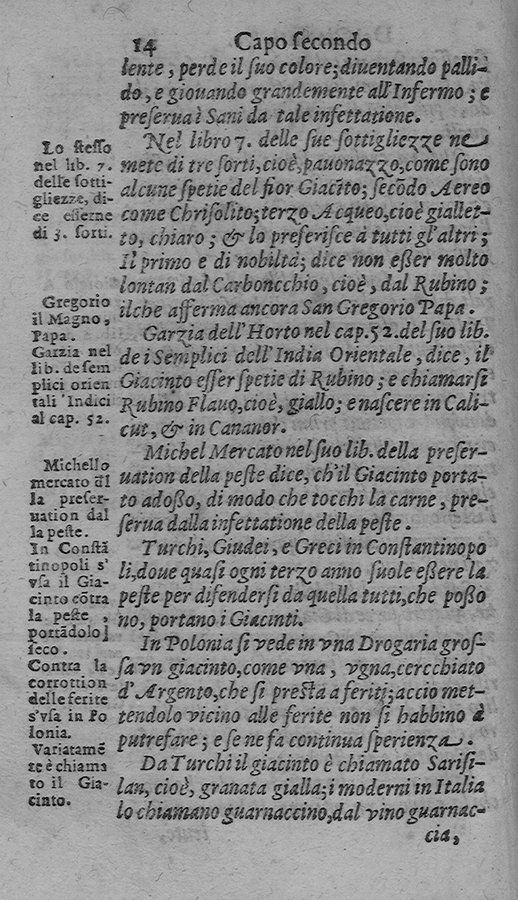 14 Capo ſecondo
lente, perde il ſuo colore; diuentando palli-
do, e giouando grandemente all'Infermo; e
preſerua i Sani da tale infettatione.
Nel libro 7. delle ſue ſottigliezze ne
mete di tre ſorti, cioè, pauonazzo, come ſono
alcune ſpetie del fior Giacĩto; ſecõdo Aereo
come Chriſolito; terzo Acqueo, cioè giallet-
to, chiaro; & lo preferiſce à tutti gl'altri;
Il primo e di nobiltà; dice non eßer molto
lontan dal Carboncchio, cioè, dal Rubino;
ilche afferma ancora San Gregorio Papa.
Garzia dell'Horto nel cap. 52. del ſuo lib.
de i Semplici dell'India Orientale, dice, il
Giacinto eſſer ſpetie di Rubino; e chiamarſi
Rubino Flauo, cioè, giallo; e naſcere in Cali-
cut, & in Cananor.
Michel Mercato nel ſuo lib. della preſer-
uation della peſte dice, ch'il Giacinto porta-
to adoßo, di modo che tocchi la carne, pre-
ſerua dalla infettatione della peſte.
Turchi, Giudei, e Greci in Conſtantinopo
li, doue quaſi ogni terzo anno ſuole eßere la
peſte per difenderſi da quella tutti, che poßo
no, portano i Giacinti.
In Polonia ſi vede in vna Drogaria groſ-
ſa vn giacinto, come vna, vgna, cercchiato
d'Argento, che ſi preſta a feriti; accio met-
tendolo vicino alle ferite non ſi habbino à
putrefare; e ſe ne fa continua ſperienza.
Da Turchi il giacinto è chiamato Sariſi-
lan, cioè, granata gialla; i moderni in Italia
lo chiamano guarnaccino, dal vino guarnac-
cia,
Lo ſteſſo
nel lib. 7.
delle ſotti-
gliezze, di-
ce eſſerne
di 3. ſorti.
Gregorio
il Magno,
Papa.
Garzia nel
lib. de ſem
plici orien
tali Indici
al cap. 52.
Michello
mercato
la preſer-
uation dal
la peſte.
In Conſtã
tinopoli s'
vſa il Gia-
cinto cõtra
la peſte,
portãdolo
ſeco.
Contra la
corottion
delle ferite
s'vſa in Po
lonia.
Variatamẽ
te è chiama
to il Gia-
cinto.